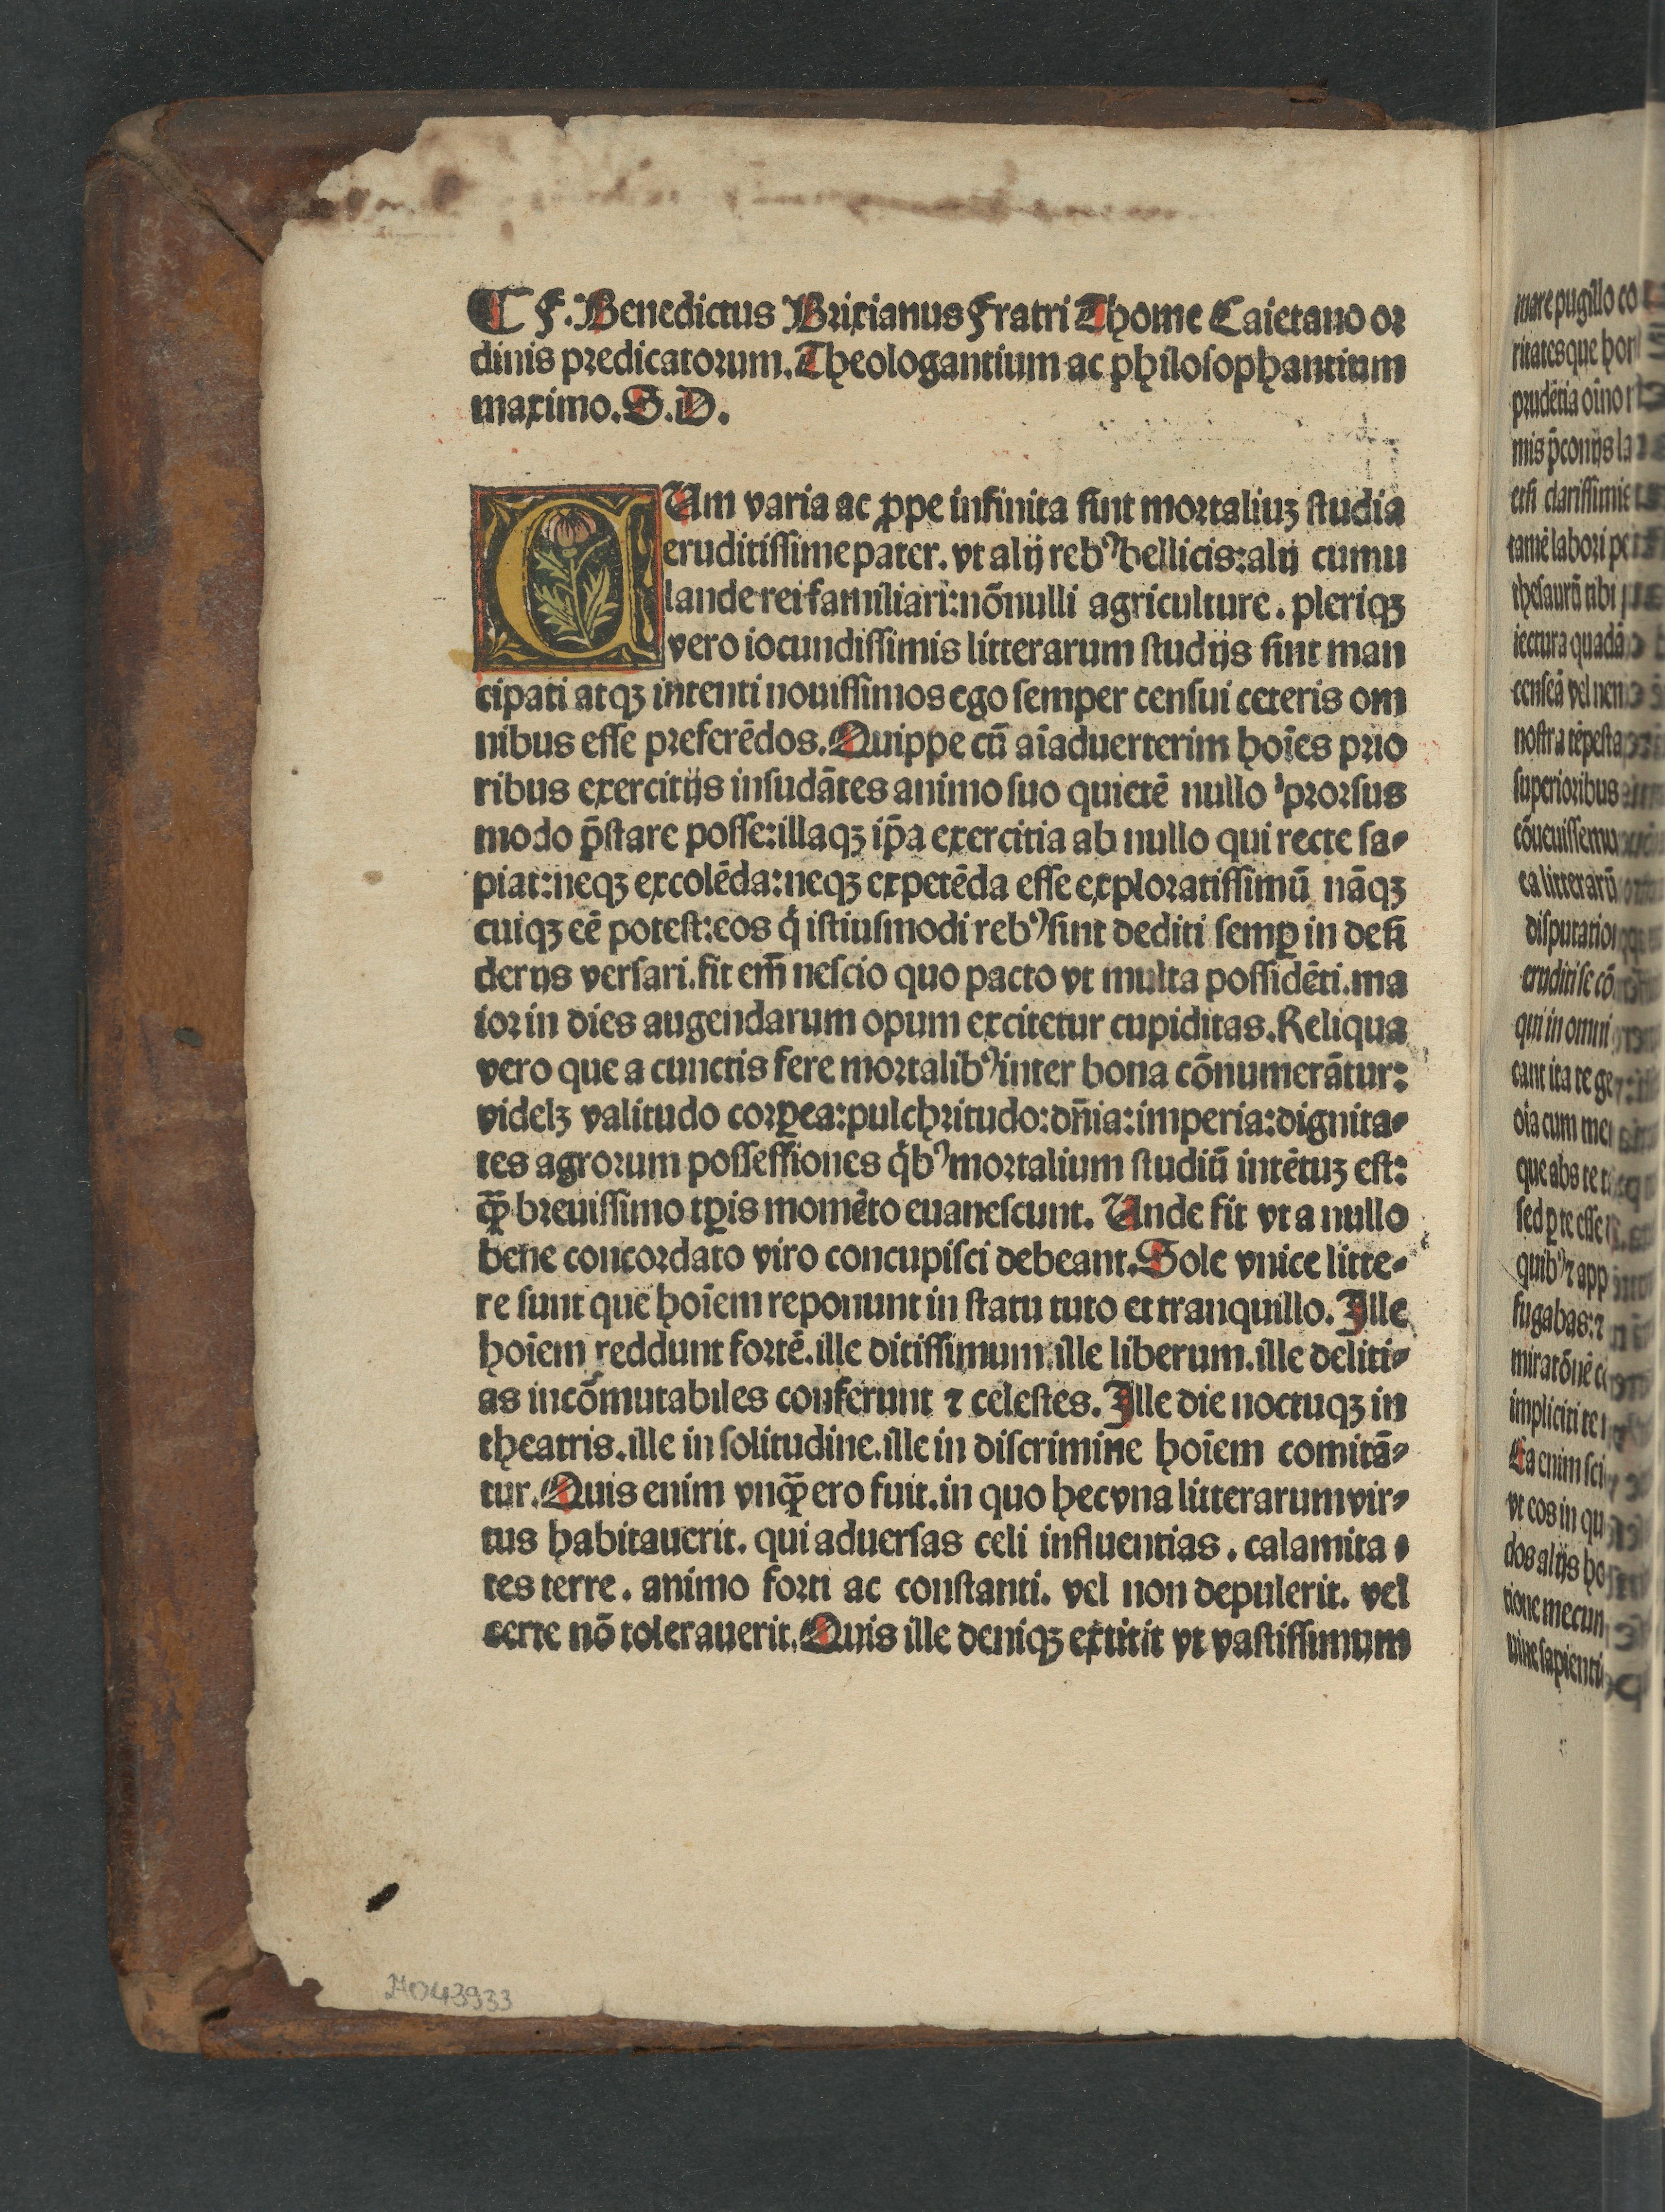 ¶ F. Benedictus Brixianus Fratri Thome Caietano or
dinis predicatorum. Theologantium ac philosophantium
maximo. S. D.
CUm varia ac ꝓpe infinita sint mortaliuꝫ studia
eruditissime pater. vt alij rebꝰ bellicis: alij cumu
lande rei familiari: nõnulli agriculture. pleriqꝫ
vero iocundissimis litterarum studijs sint man
cipati atqꝫ intenti nouissimos ego semper censui ceteris om
nibus esse preferẽdos. Quippe cũ aĩaduerterim hoĩes prio
ribus exercitijs insudãtes animo suo quietẽ nullo prorsus
modo p̃stare posse: illaqꝫ ip̃a exercitia ab nullo qui recte sa⸗
piat: neqꝫ excolẽda: neqꝫ expetẽda esse exploratissimũ nãqꝫ
cuiqꝫ eẽ potest: eos q̇ istiusmodi rebꝰ sint dediti semꝑ in desi
derijs versari. fit em̃ nescio quo pacto vt multa possidẽti. ma
ior in dies augendarum opum excitetur cupiditas. Reliqua
vero que a cunctis fere mortalibꝰ inter bona cõnumerãtur:
videlꝫ valitudo corꝑea: pulchritudo: dñia: imperia: dignita⸗
tes agrorum possessiones q̇bꝰ mortalium studiũ intẽtuꝫ est:
qꝫ̃ breuissimo tꝑis momẽto euanescunt. Unde fit vt a nullo
bene concordato viro concupisci debeant. Sole vnice litte⸗
re sunt que hoĩem reponunt in statu tuto et tranquillo. Ille
hoĩem reddunt fortẽ. ille ditissimum. ille liberum. ille deliti⸗
as incõmutabiles conferunt ⁊ celestes. Ille die noctuqꝫ in
theatris. ille in solitudine. ille in discrimine hoĩem comitã⸗
tur. Quis enim vnqꝫ̃ ero fuit. in quo hec vna litterarum vir⸗
tus habitauerit. qui aduersas celi influentias. calamita⸗
tes terre. animo forti ac constanti. vel non depulerit. vel
certe nõ tolerauerit. Quis ille deniqꝫ extitit vt vastissimum
A043933
mare pugillo co
ritatesque hor
prudẽtia oĩno
mis p̃conijs la
etsi clarissimi
tamẽ labori pe
thesaurũ tibi
iectura quadã
censeã vel nem
nostra tẽpesta
superioribus
cõueuissemu
ea litterarũ
disputatio
eruditise cõ
qui in omni
cant ita te ge
oĩa cum me
que abs te t
sed ꝑ te esse
quibꝰ ⁊ app
fugabas: ⁊
miratõnẽ c
impliciti te
Ea enim sci
vt eos in qu
dos alijs ho
tione mecun
uine sapienti